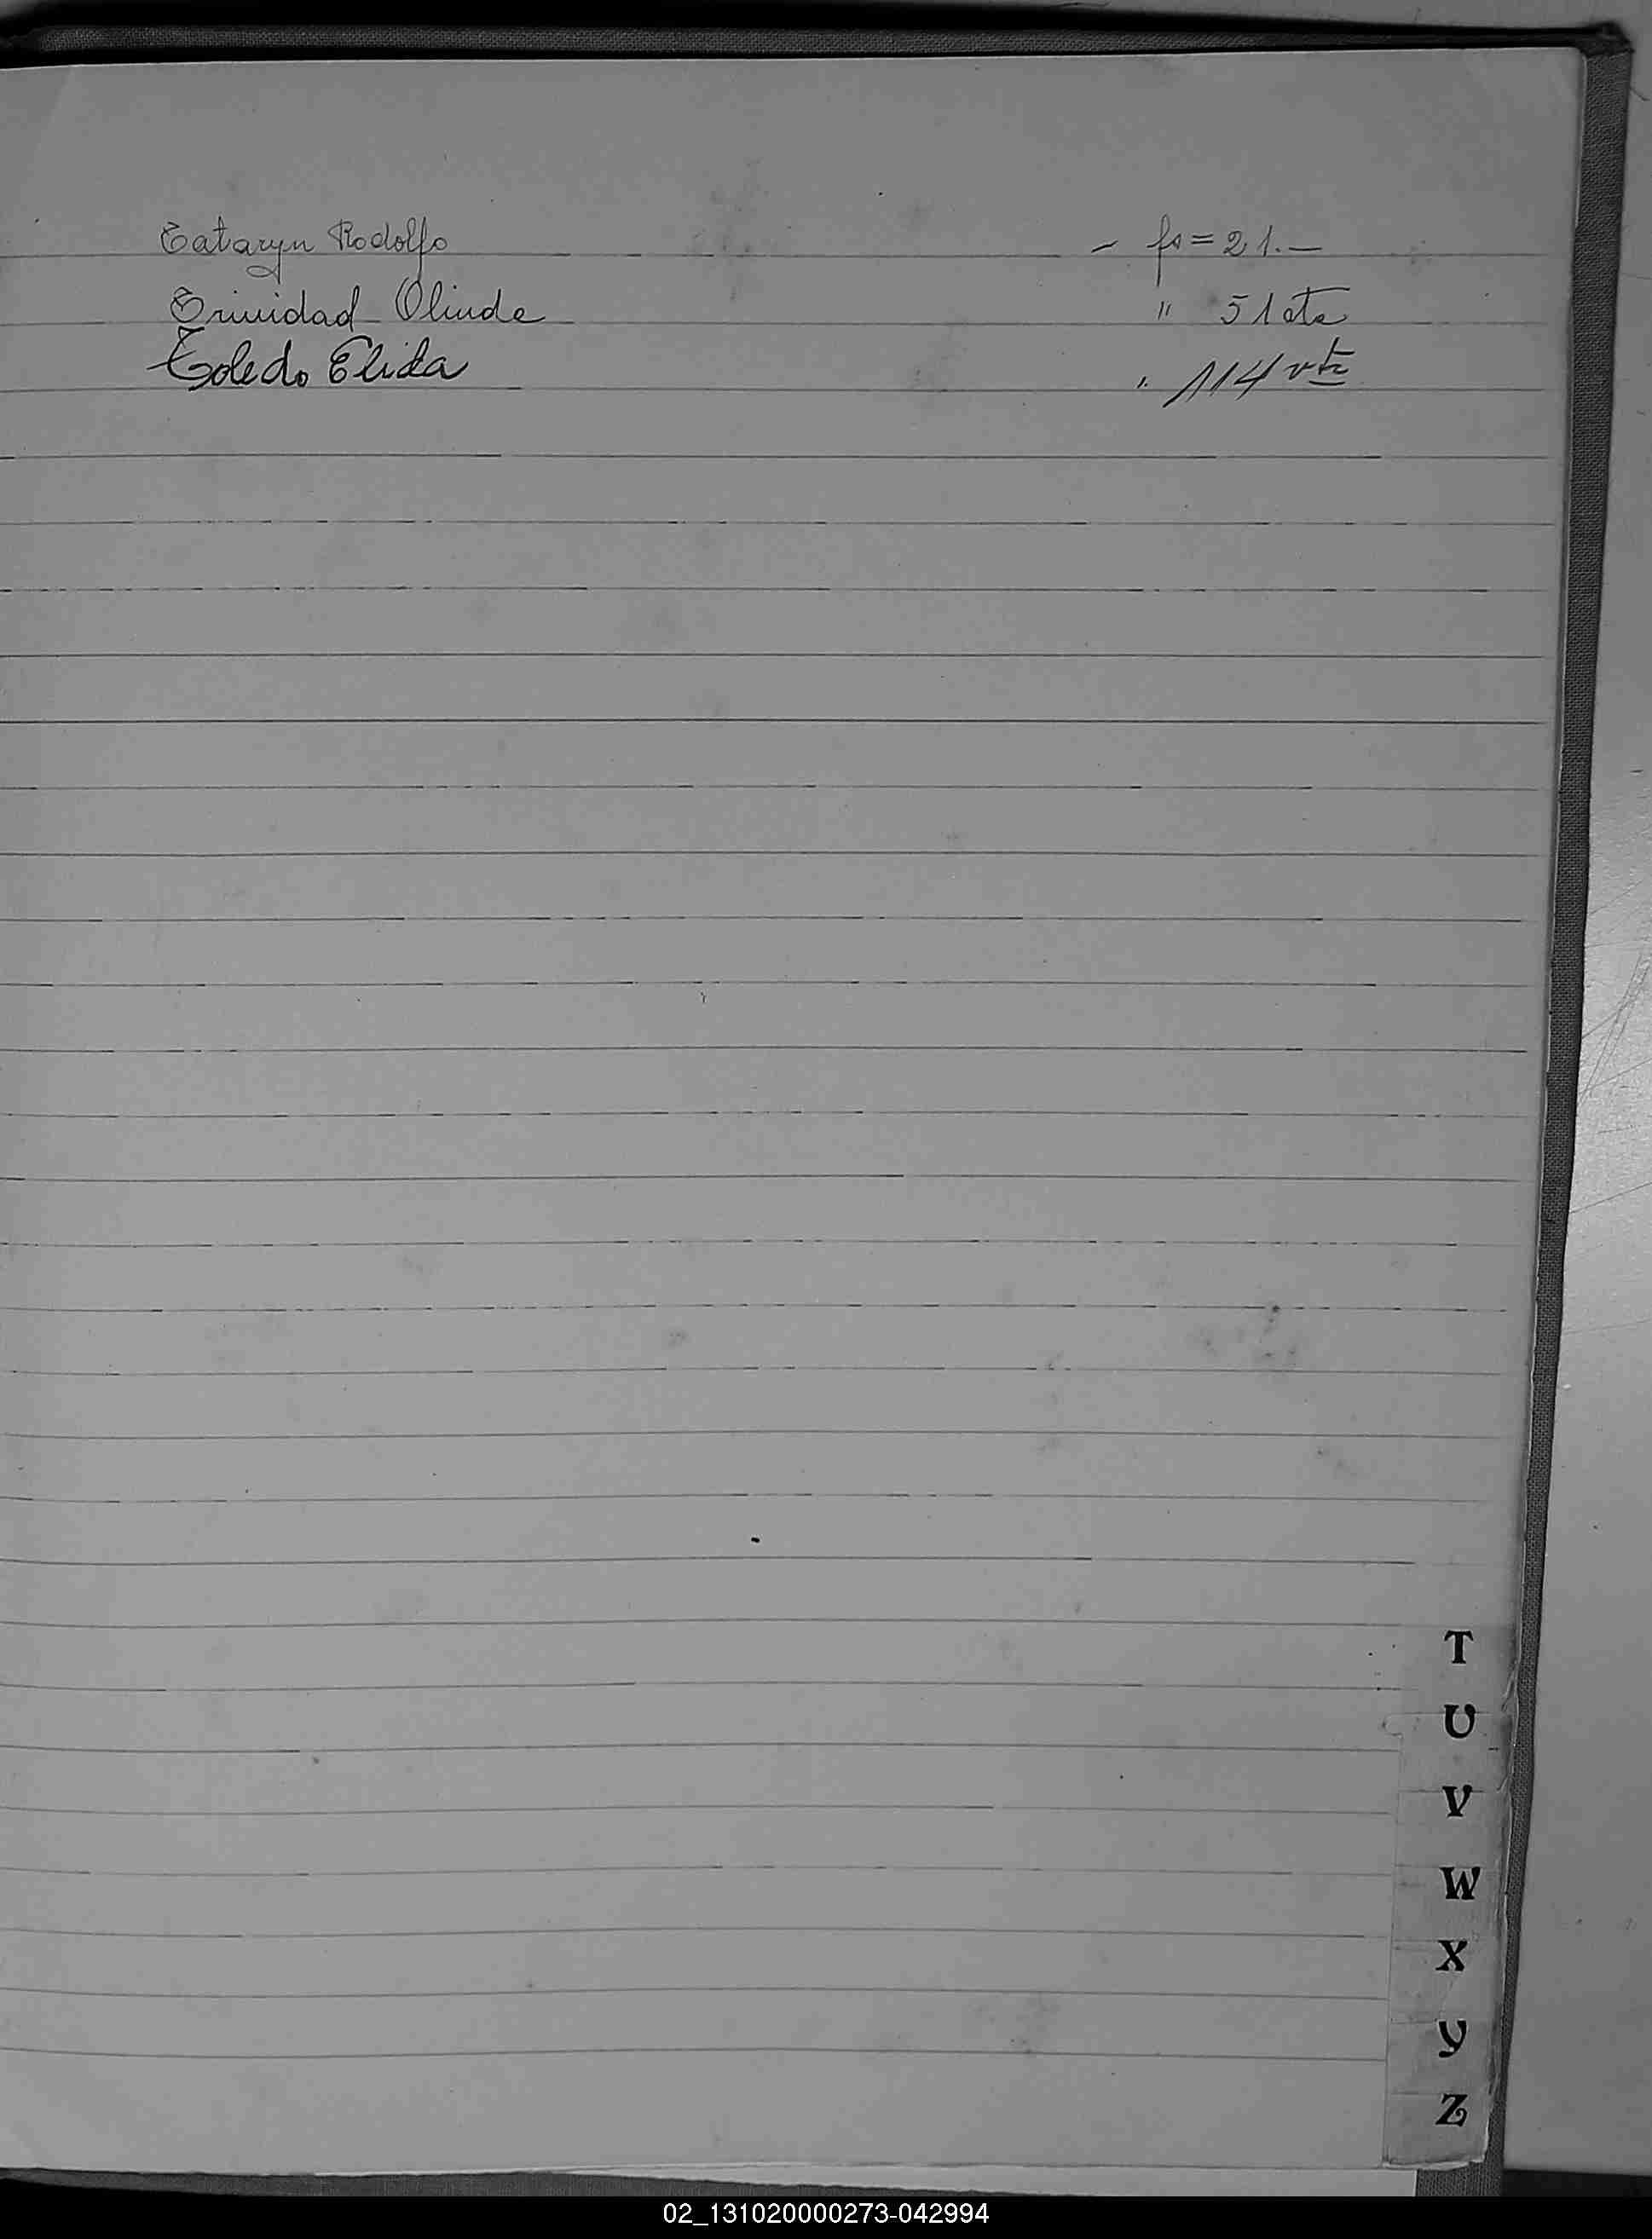 Tataryn Rodolfo - fs=21.-
Trinidad Olinda " 51 vta
Toledo Elida " 114 vta
T
U
V
W
X
Y
Z
02_131020000273-042994